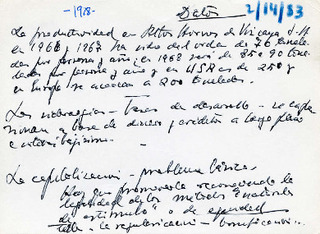 -1978- Datos 2/14/83
La productividad en Altos Hornos de Vizcaya S.A.
en 1966 y 1967 ha sido del orden de 76 tonela-
das por persona y año, en 1968 será de 85 a 90 tone-
ladas por persona y año y en USA es de 250 y
en Europa se acercan a 200 toneladas.
Las siderurgias - Tasas de desarrollo - no
a base de dinero a largo plazo
e interés bajísimo -
La capitalización - problema básico -
Hay que promoverla reconociendo la
legitimidad de los métodos
de estímulo o de
- la regularización -